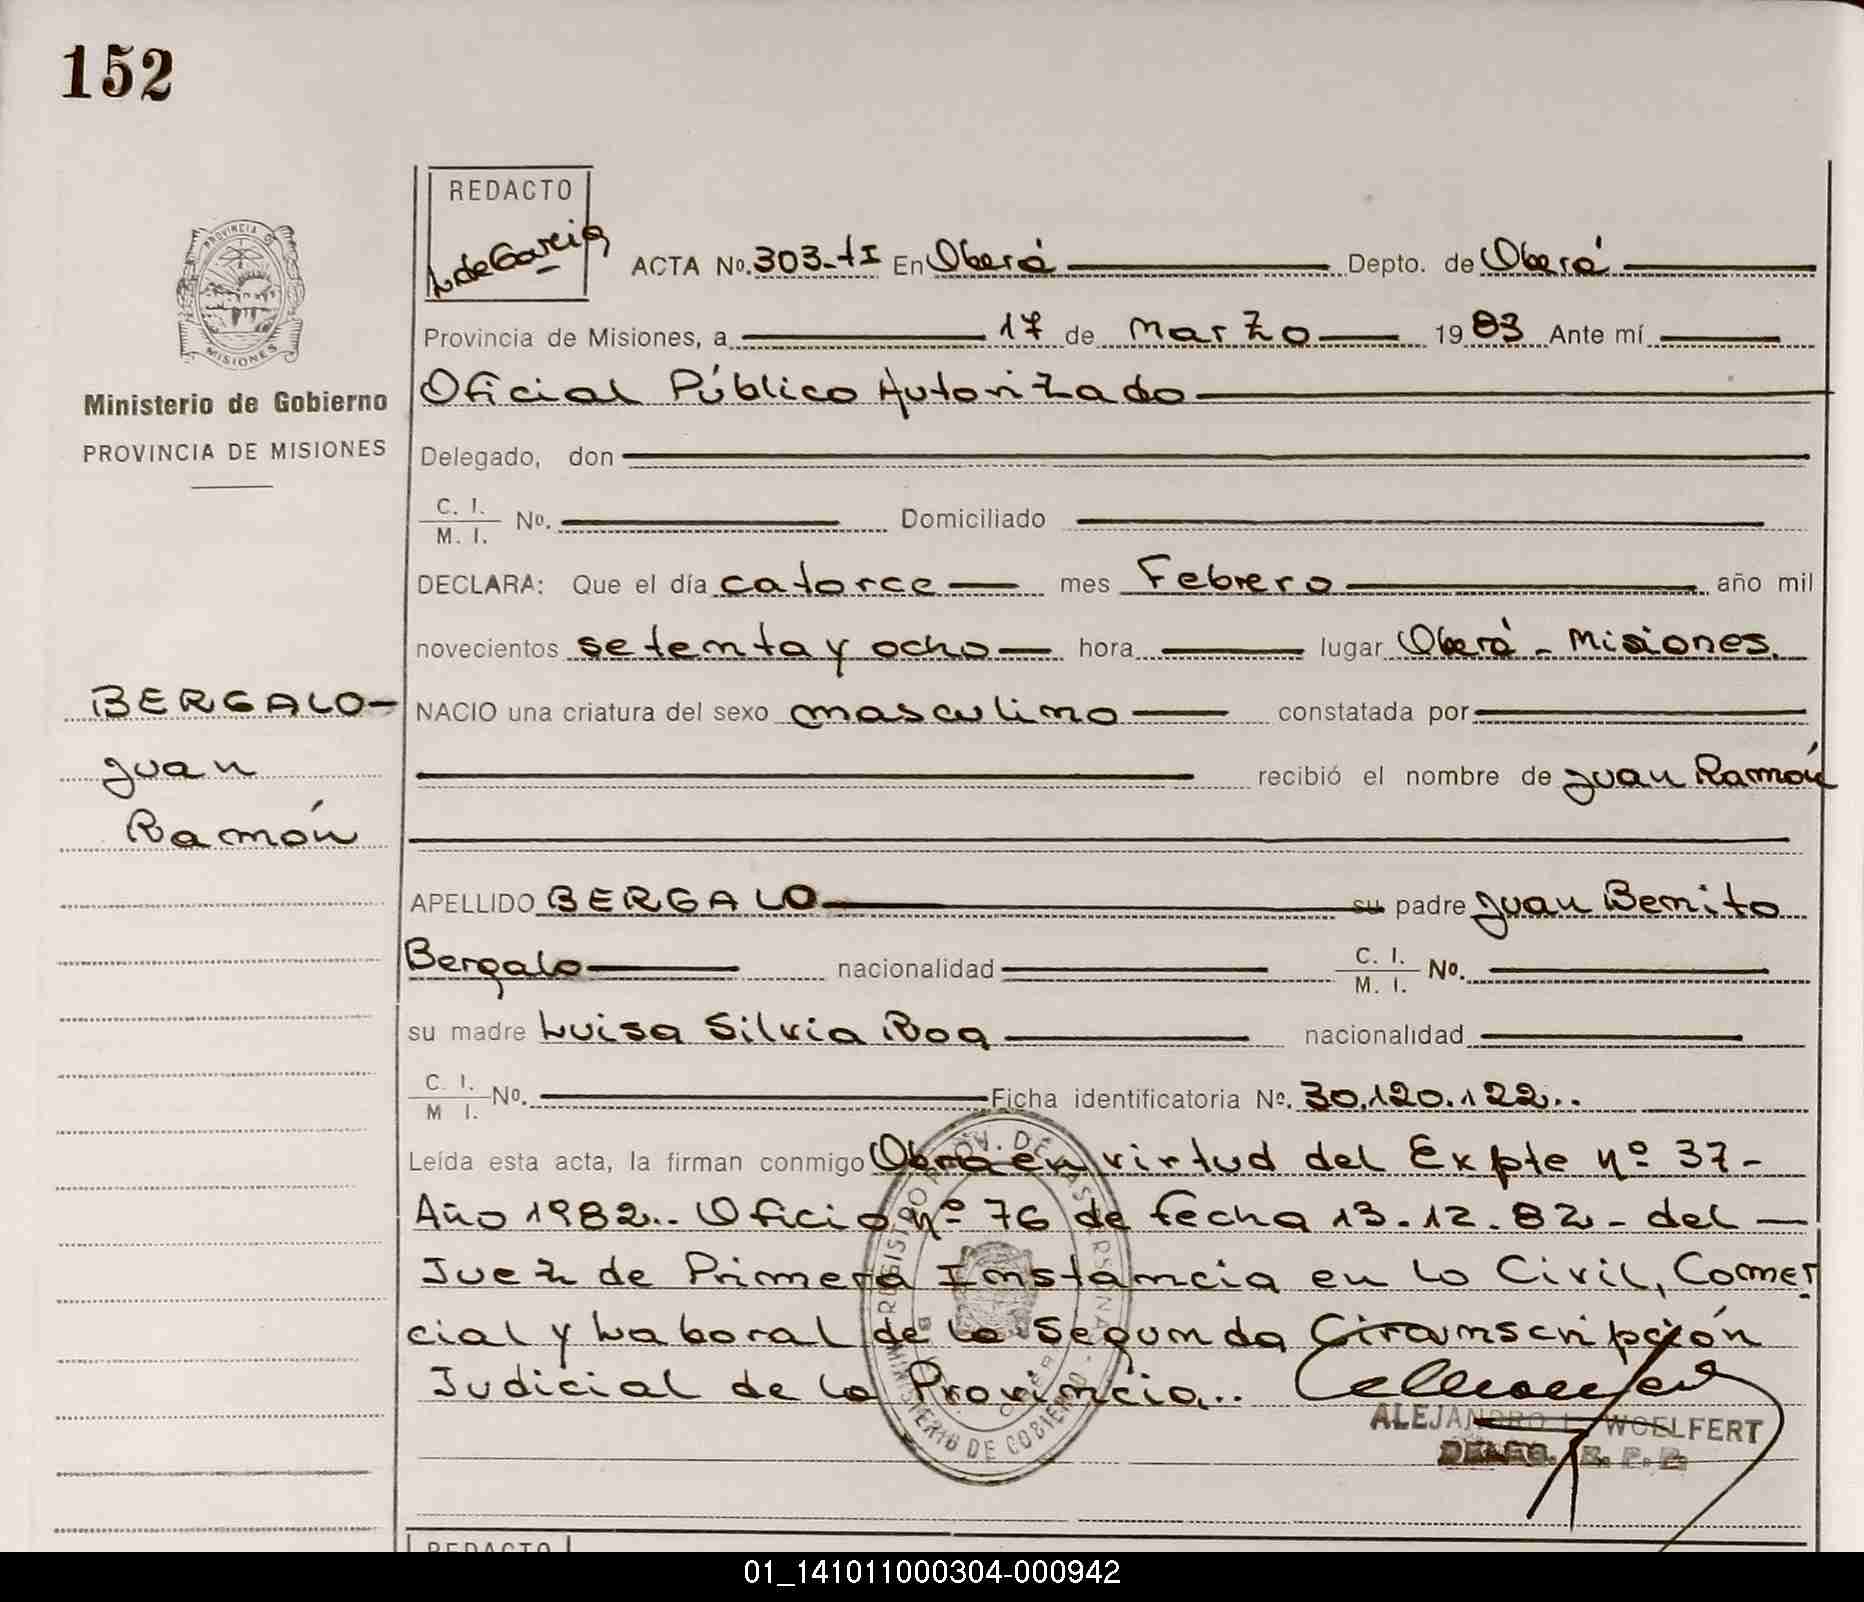 152
REDACTO
L. de Garcia
ACTA No. 303-tI En Oberá Depto. de Oberá
PROVINCIA DE
MISIONES
Provincia de Misiones, a 17 de marzo 1983 Ante mí
Ministerio de Gobierno
Oficial Público Autorizado
PROVINCIA DE MISIONES
Delegado, don
C. I.
M. I. No. Domiciliado
DECLARA: Que el día catorce mes Febrero año mil
novecientos setenta y ocho hora lugar Oberá - Misiones.
BERGALO-
NACIO una criatura del sexo masculino constatada por
Juan
recibió el nombre de Juan Ramón
Ramón
APELLIDO BERGALO su padre Juan Benito
Bergalo nacionalidad C. I.
M. I. No.
su madre Luisa Silvia Roa nacionalidad
C. I.
M I. No. Ficha identificatoria No. 30.120.122..
Leída esta acta, la firman conmigo Obra en virtud del Expte nº 37-
Año 1982.. Oficio nº 76 de fecha 13.12.82. del
Juez de Primera Instancia en lo Civil, Comer
cial y Laboral de la Segunda Circunscripción
Judicial de la Provincia...
MINISTERIO DE GOBIERNO
ALEJANDRO L. WOELFERT
REDACTO
01_141011000304-000942